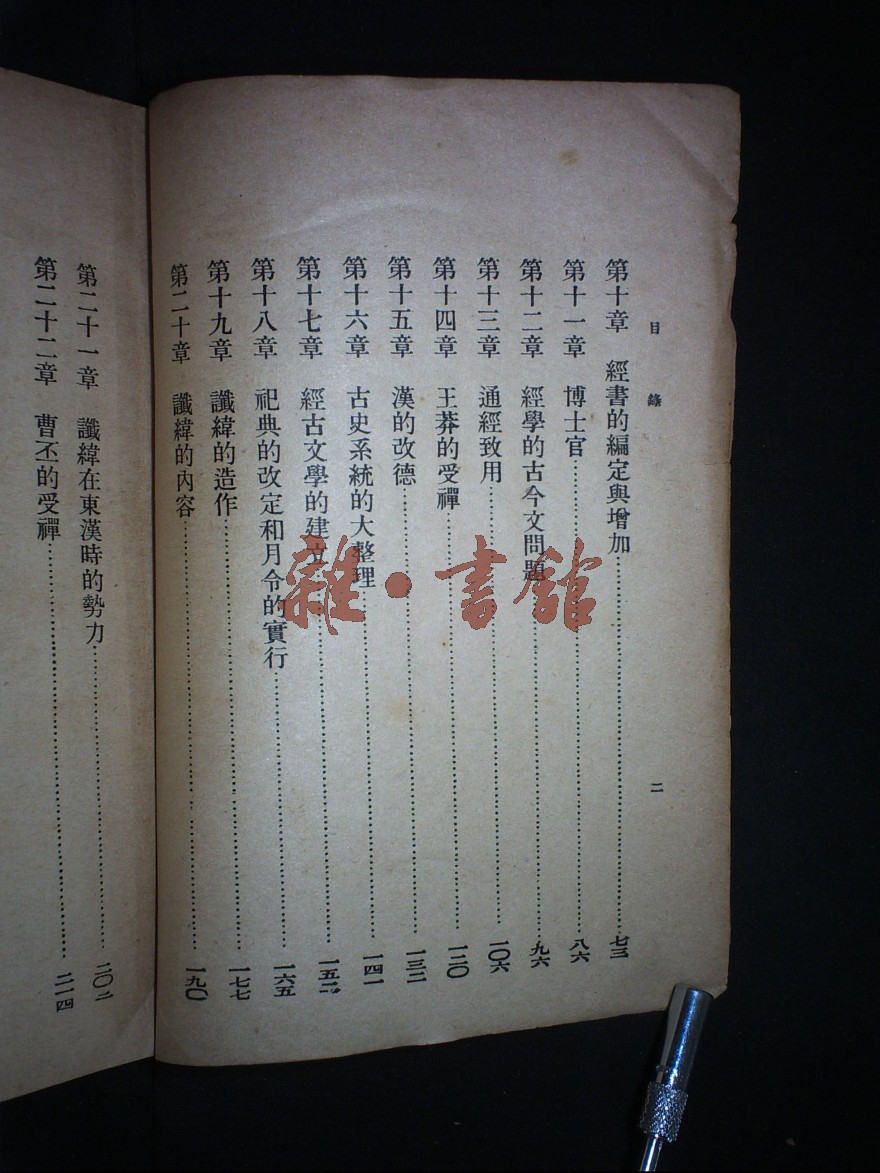 目錄
二
第十章 經書的編定與增加……七三
第十一章 博士官……八六
第十二章 經學的古今文問題……九六
第十三章 通經致用……一〇六
第十四章 王莽的受禪……一二〇
第十五章 漢的改德……一三二
第十六章 古史系統的大整理……一四一
第十七章 經古文學的建立……一五二
第十八章 祀典的改定和月令的實行……一六五
第十九章 讖緯的造作……一七七
第二十章 讖緯的內容……一九〇
第二十一章 讖緯在東漢時的勢力……二〇二
第二十二章 曹丕的受禪……二一四
雜·書館